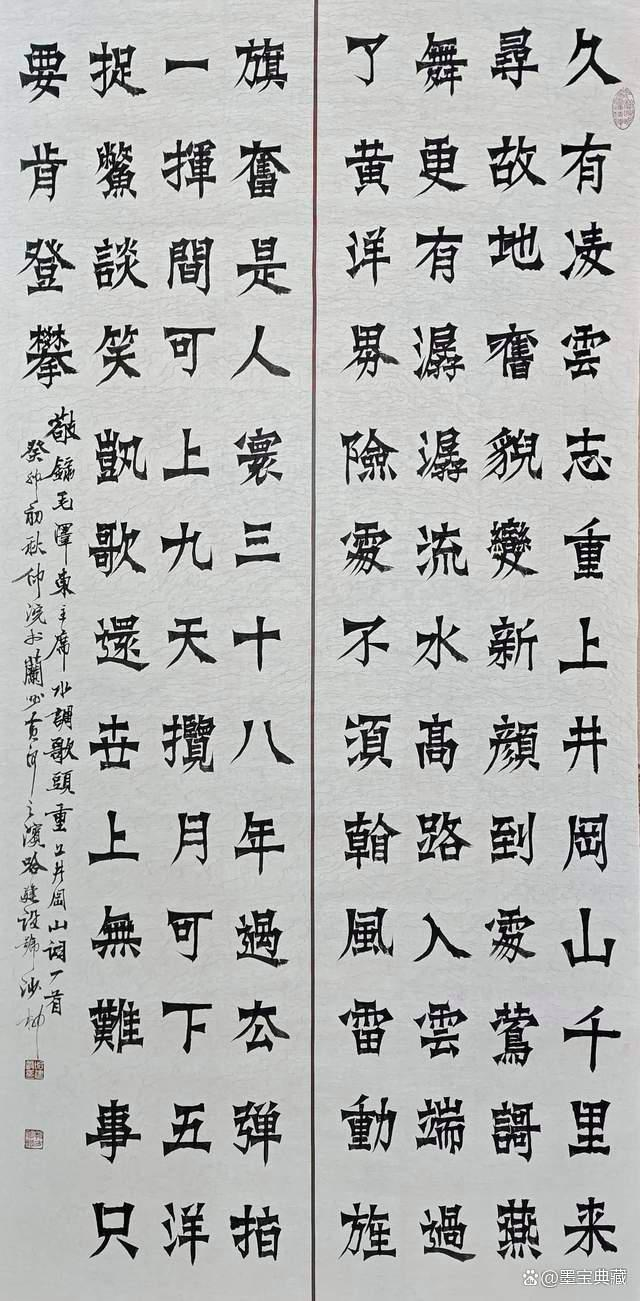 久有凌雲志重上井岡山千里来
尋故地舊貌變新顔到處鶯謌燕
舞更有潺潺流水高路入雲端過
了黄洋界險處不須看風雷動旌
旗奮是人寰三十八年過去弹指
一揮間可上九天攬月可下五洋
捉鱉談笑凱歌還世上無難事只
要肯登攀
敬錄毛澤東主席水調歌頭重上井岡山詞一首
癸卯初秋仲浣於蘭州黄河之濱路建設號沙柳
墨宝典藏